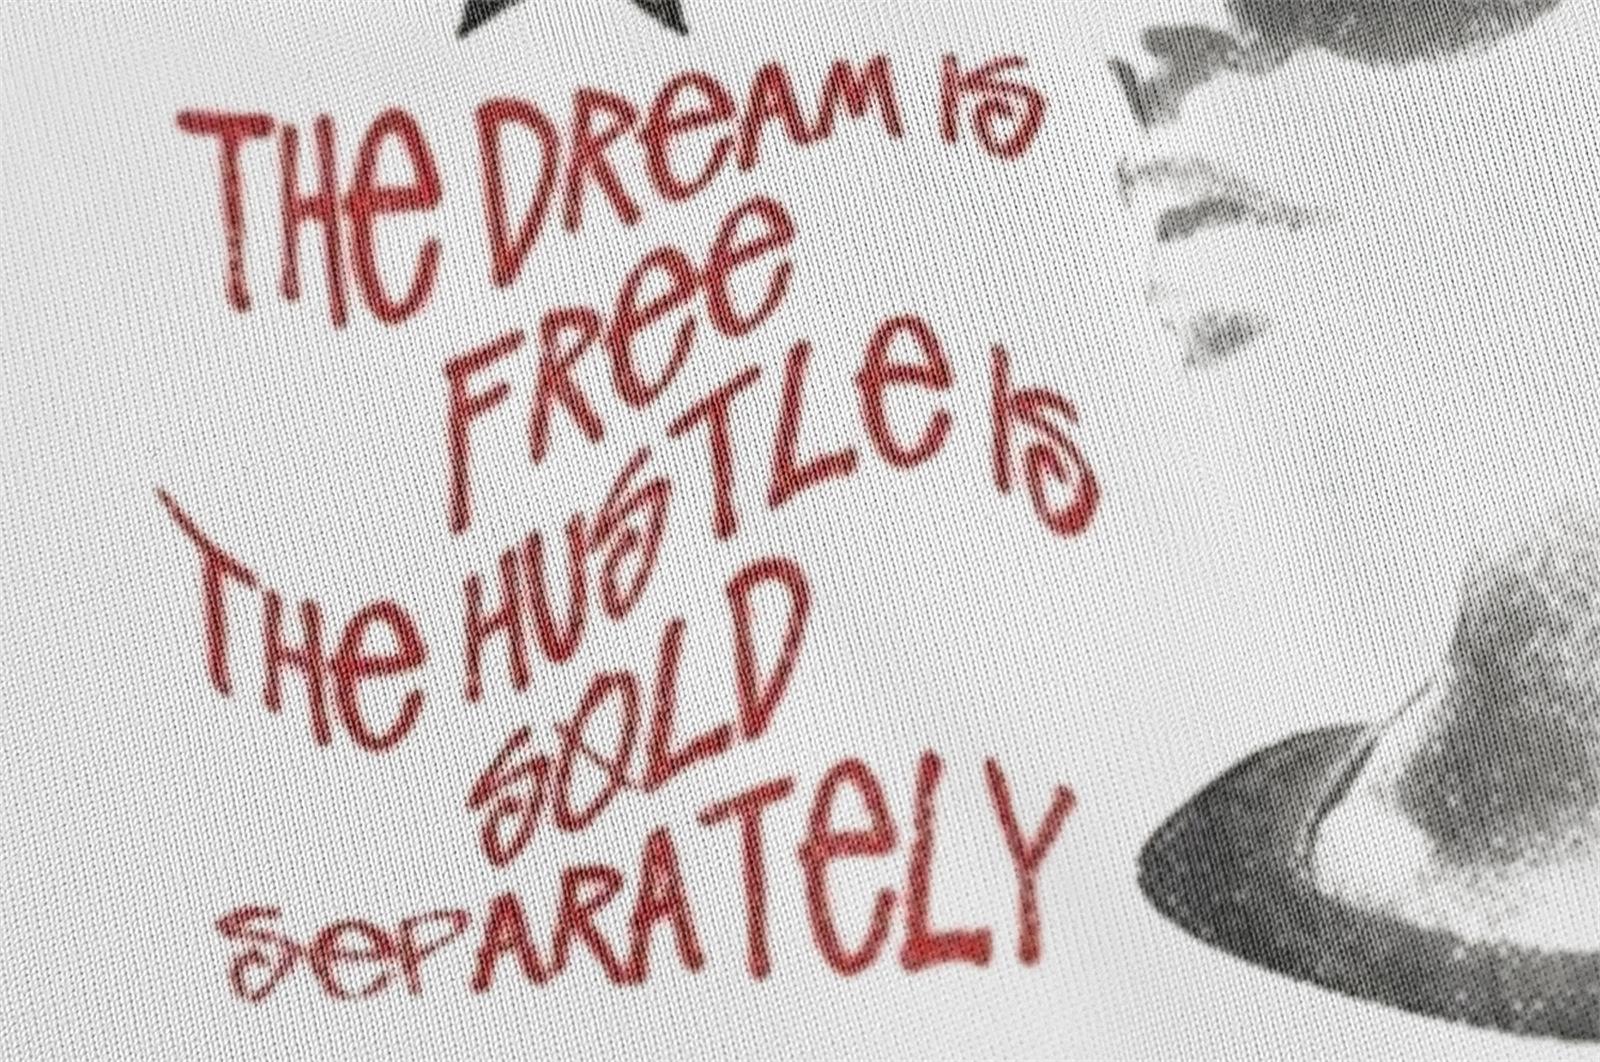 THe DReAM IS
FRee
THe HUSTLe IS
SOLD
SePARATeLY